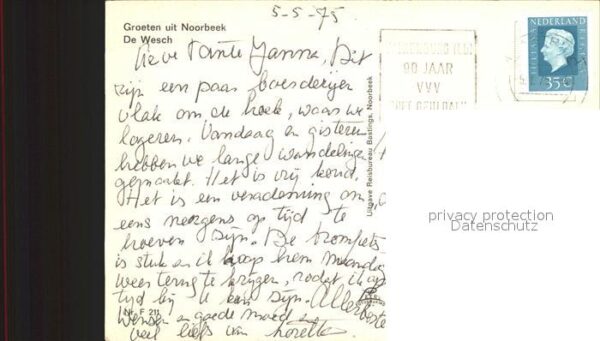 5-5-75
Groeten uit Noorbeek
De Wesch
Lieve Tante Janna, Dit
zijn een paar boerderijen
vlak om de hoek, waar we
logeren. Vandaag en gisteren
hebben we lange wandelingen
gemaakt. Het is vrij koud.
Het is een verademing om
eens nergens op tijd te
hoeven zijn. De trompet
is stuk en ik hoop hem maandag
weer terug te krijgen, zodat ik op
tijd bij U kan zijn. Allerbeste
wensen en goede moed en
veel liefs van
F 211
Uitgave Reisbureau Bastings, Noorbeek
90 JAAR
VVV
NEDERLAND
35c
privacy protection
Datenschutz